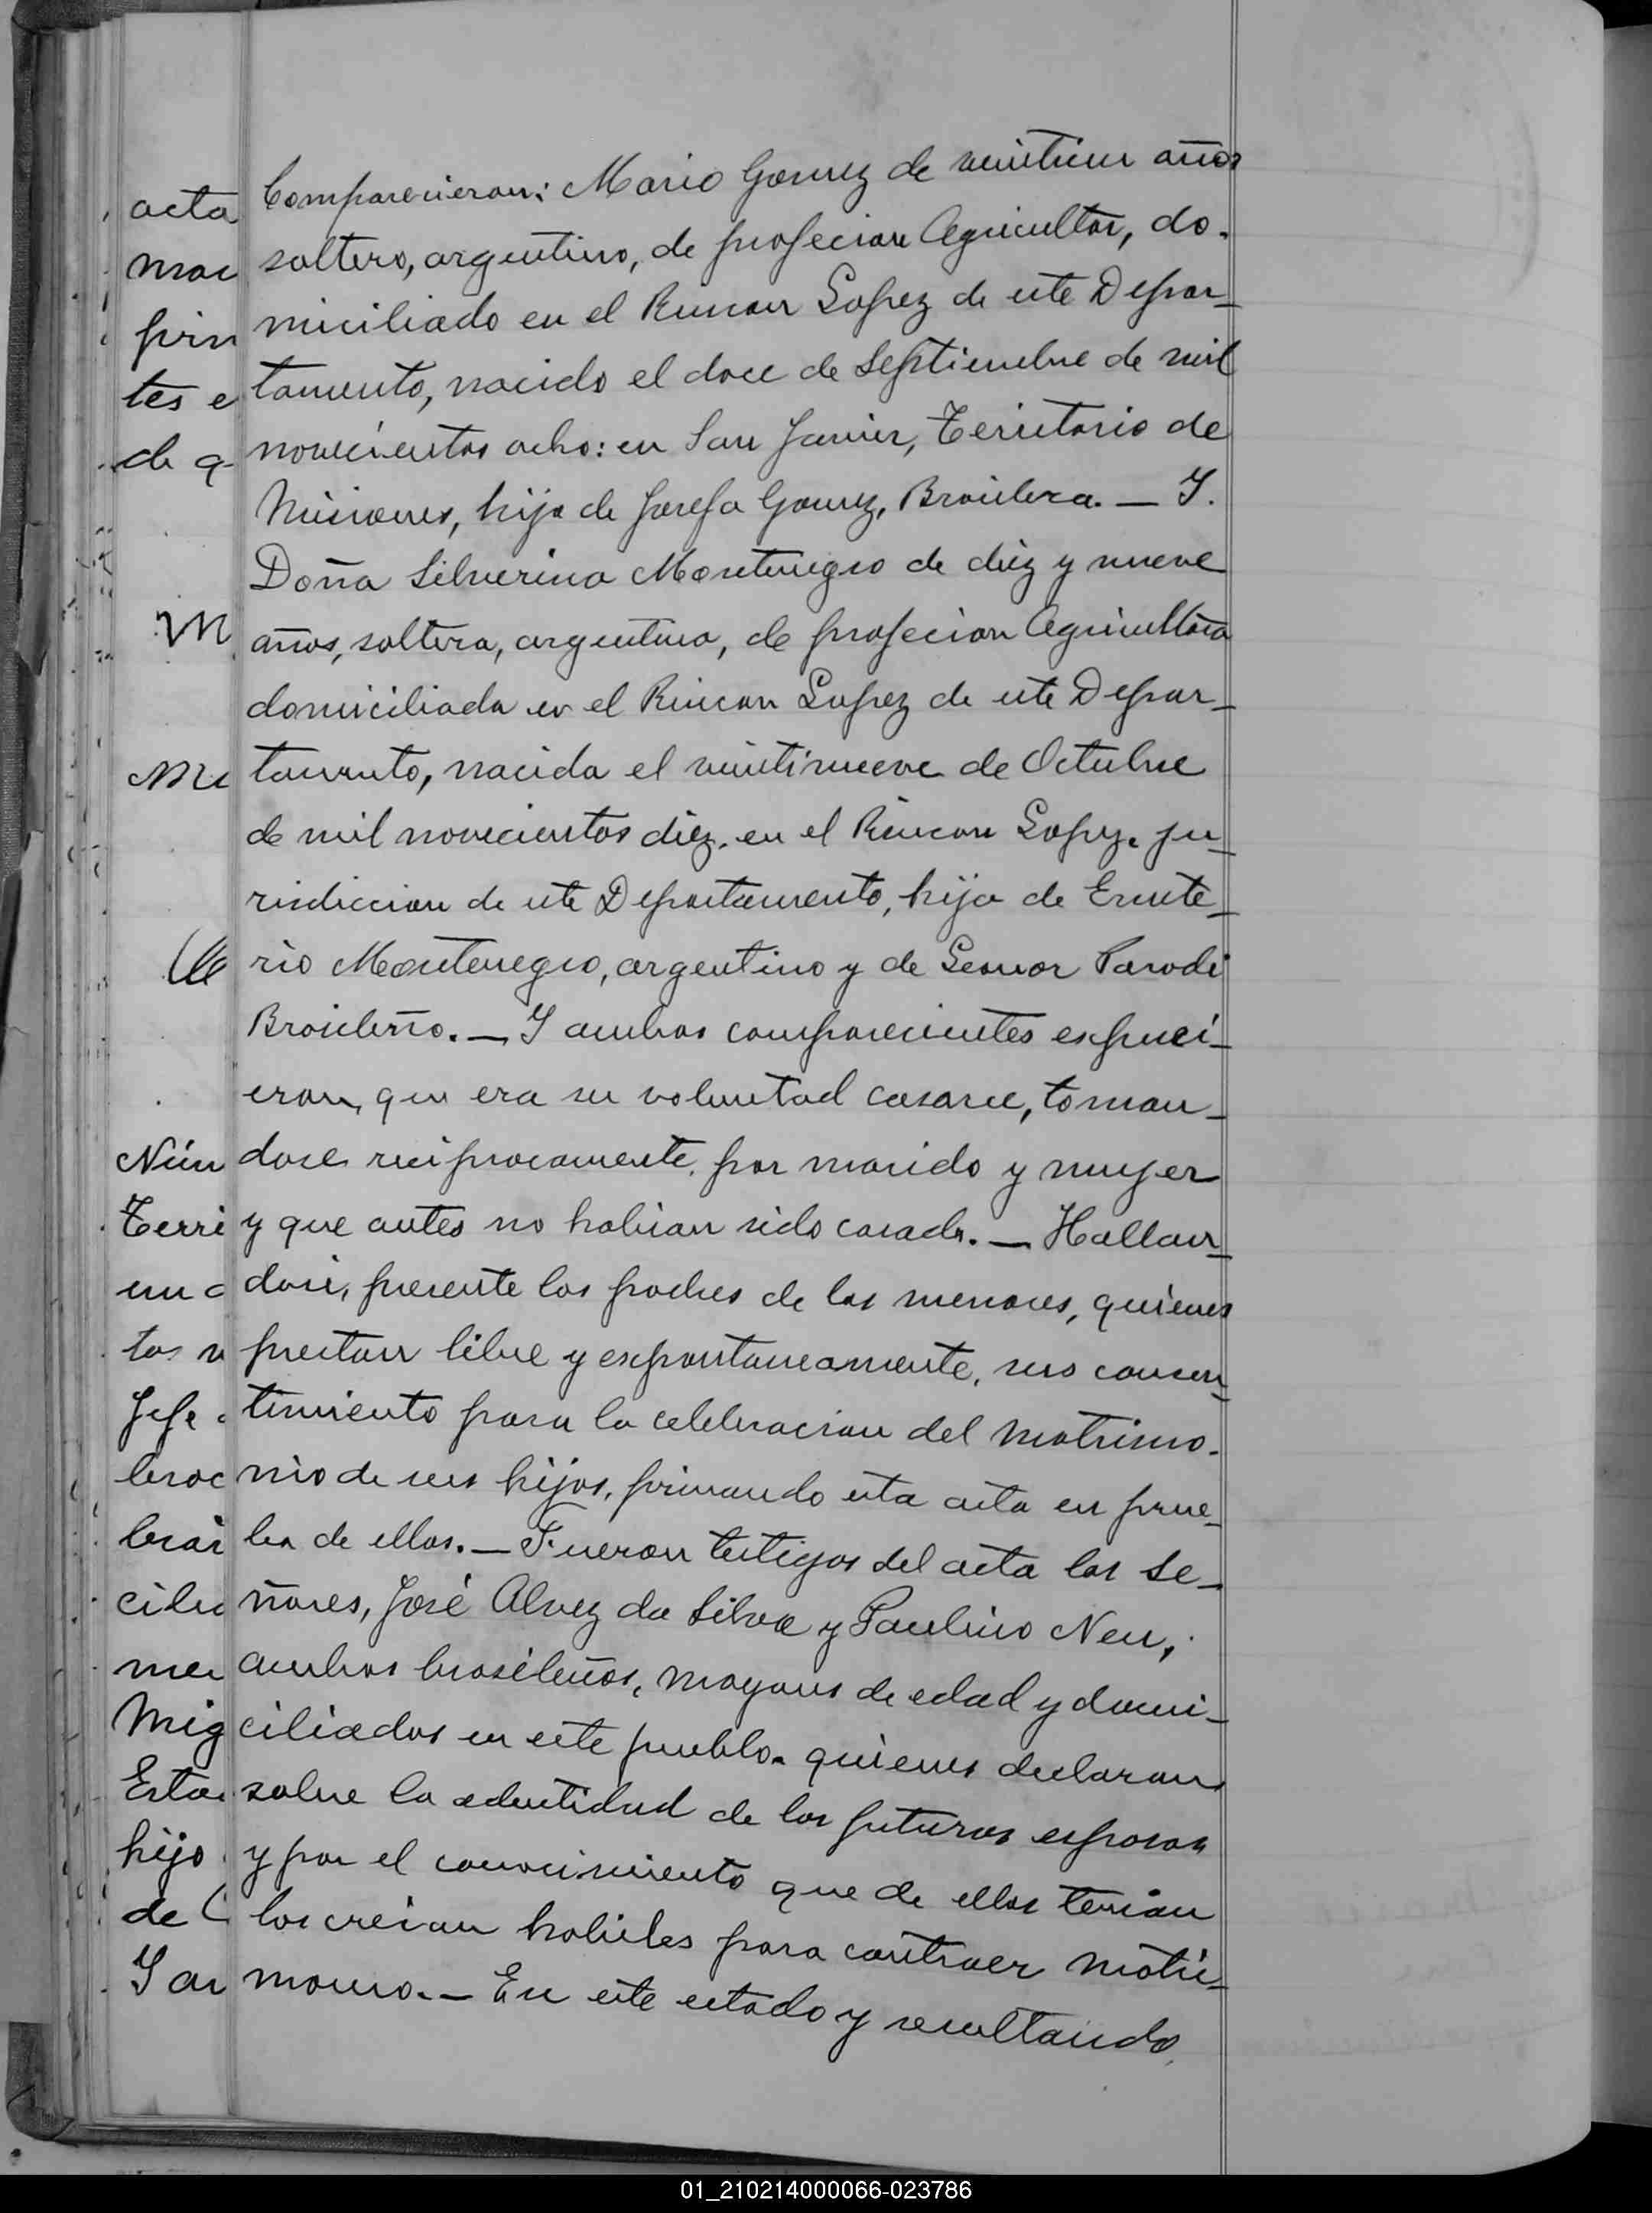 Comparecieron: Mario Gomez de veintiun años
soltero, argentino, de profecion Agricultor, do-
miciliado en el Rincon Lopez de este Depar-
tamento, nacido el doce de Septiembre de mil
novecientos ocho: en San Javier, Territorio de
Misiones, hijo de Josefa Gomez, Brasilera. — Y.
Doña Silverina Montenegro de diez y nueve
años, soltera, argentina, de profecion Agricultora
domiciliada en el Rincon Lopez de este Depar-
tamento, nacida el veintinueve de Octubre
de mil novecientos diez, en el Rincon Lopez, ju-
risdiccion de este Departamento, hija de Emete-
rio Montenegro, argentino y de Leonor Parodi
Brasileña. — Y ambos comparecientes espuci-
eron, que era su voluntad casarce, toman-
dose reciprocamente, por marido y mujer
y que antes no habian sido casados. — Hallan-
dose, presente los padres de los menores, quienes
prestan libre y espontaneamente, sus consen-
timiento para la celebracion del matrimo-
nio de sus hijos, firmando esta acta en prue-
ba de ellos. — Fueron testigos del acta los Se-
ñores, José Alvez da Silva y Paulino Neu,
ambos brasileños, mayores de edad y domi-
ciliados en este pueblo. quienes declaran
sobre la edentidad de los futuros esposos
y por el conocimiento que de ellos tenian
los creian habiles para contraer matri-
monio. — En este estado y resultando
acta
mac
prin
tes e
de q
M
Me
Núm
Terri
un c
tos n
Jefe
cili
me
Mig
Esta
hijo
de
Y am
01_210214000066-023786